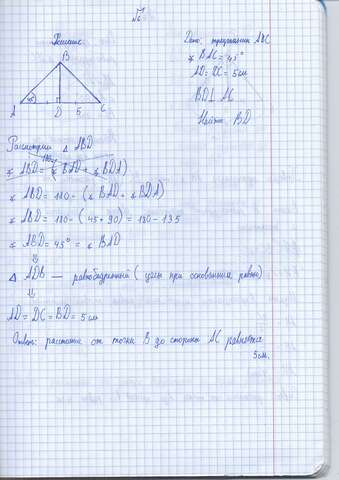 №6
Решение
Дано: треугольник ABC
∠ BAC = 45°
AD = DC = 5 см
BD ⊥ AC
Найти: BD
B
45°
A D 5 C
Рассмотрим △ ABD
∠ ABD = 180 - (∠ BAD + ∠ BDA)
∠ ABD = 180 - (∠ BAD + ∠ BDA)
∠ ABD = 180 - (45 + 90) = 180 - 135
∠ ABD = 45° = ∠ BAD
⇓
△ ADB — равнобедренный (углы при основании равны)
⇓
AD = DC = BD = 5 см
Ответ: расстояние от точки B до стороны AC равняется
5 см.